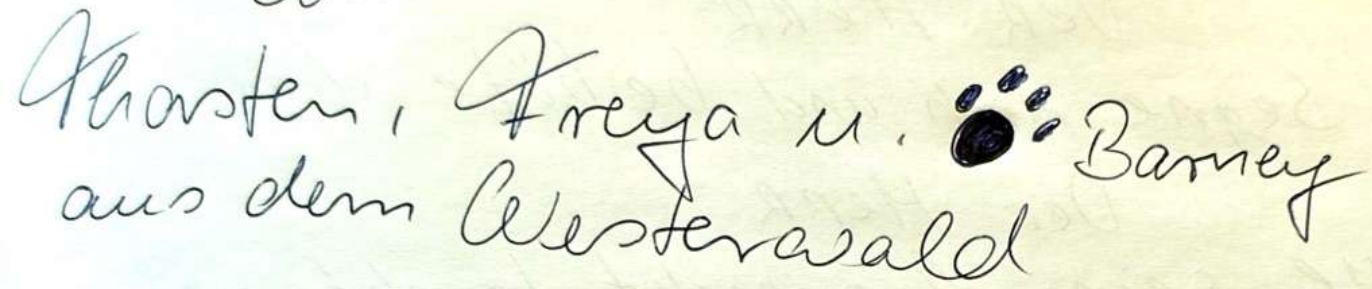 Thorsten, Freya u. 🐾 Barney
aus dem Westerwald